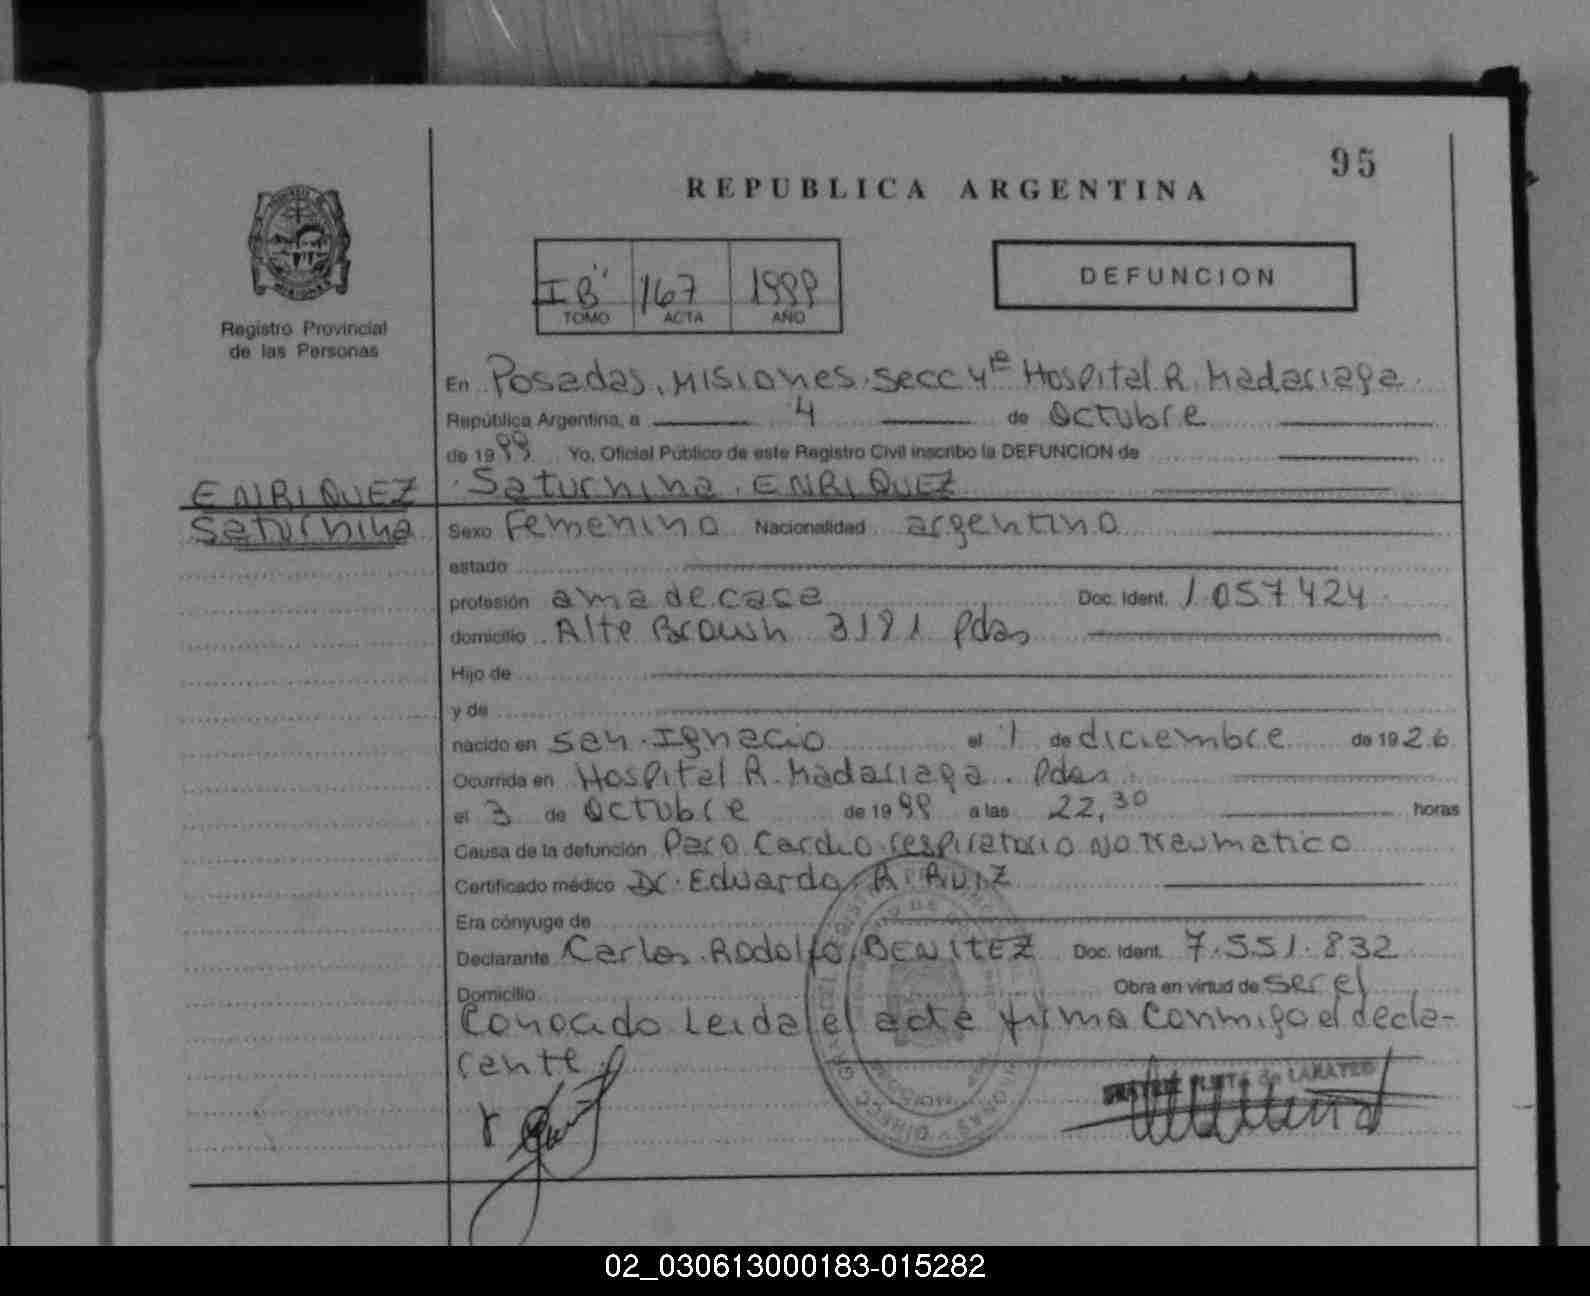 95
REPUBLICA ARGENTINA
Registro Provincial
de las Personas
I B" 167 1999
TOMO ACTA AÑO
DEFUNCION
En Posadas, Misiones. Secc 4ta Hospital R. Madariaga
República Argentina, a 4 de Octubre
de 1999. Yo, Oficial Público de este Registro Civil inscribo la DEFUNCION de
ENRIQUEZ
Saturnina
Saturnina. ENRIQUEZ
Sexo Femenino Nacionalidad argentino
estado
profesión ama de casa Doc. Ident. 1.057424
domicilio Alte Brown 3191 Pdas
Hijo de
y de
nacido en San Ignacio el 1 de diciembre de 1926
Ocurrida en Hospital R. Madariaga. Pdas
el 3 de Octubre de 1999 a las 22,30 horas
Causa de la defunción Paro Cardio respiratorio No Traumatico
Certificado médico Dr. Eduardo A. Ruiz
Era cónyuge de
Declarante Carlos Rodolfo BENITEZ Doc. Ident. 7.551.832
Domicilio Obra en virtud de ser el
Conocido Leida el acta firma Conmigo el decla-
rante
de LAMATED
02_030613000183-015282